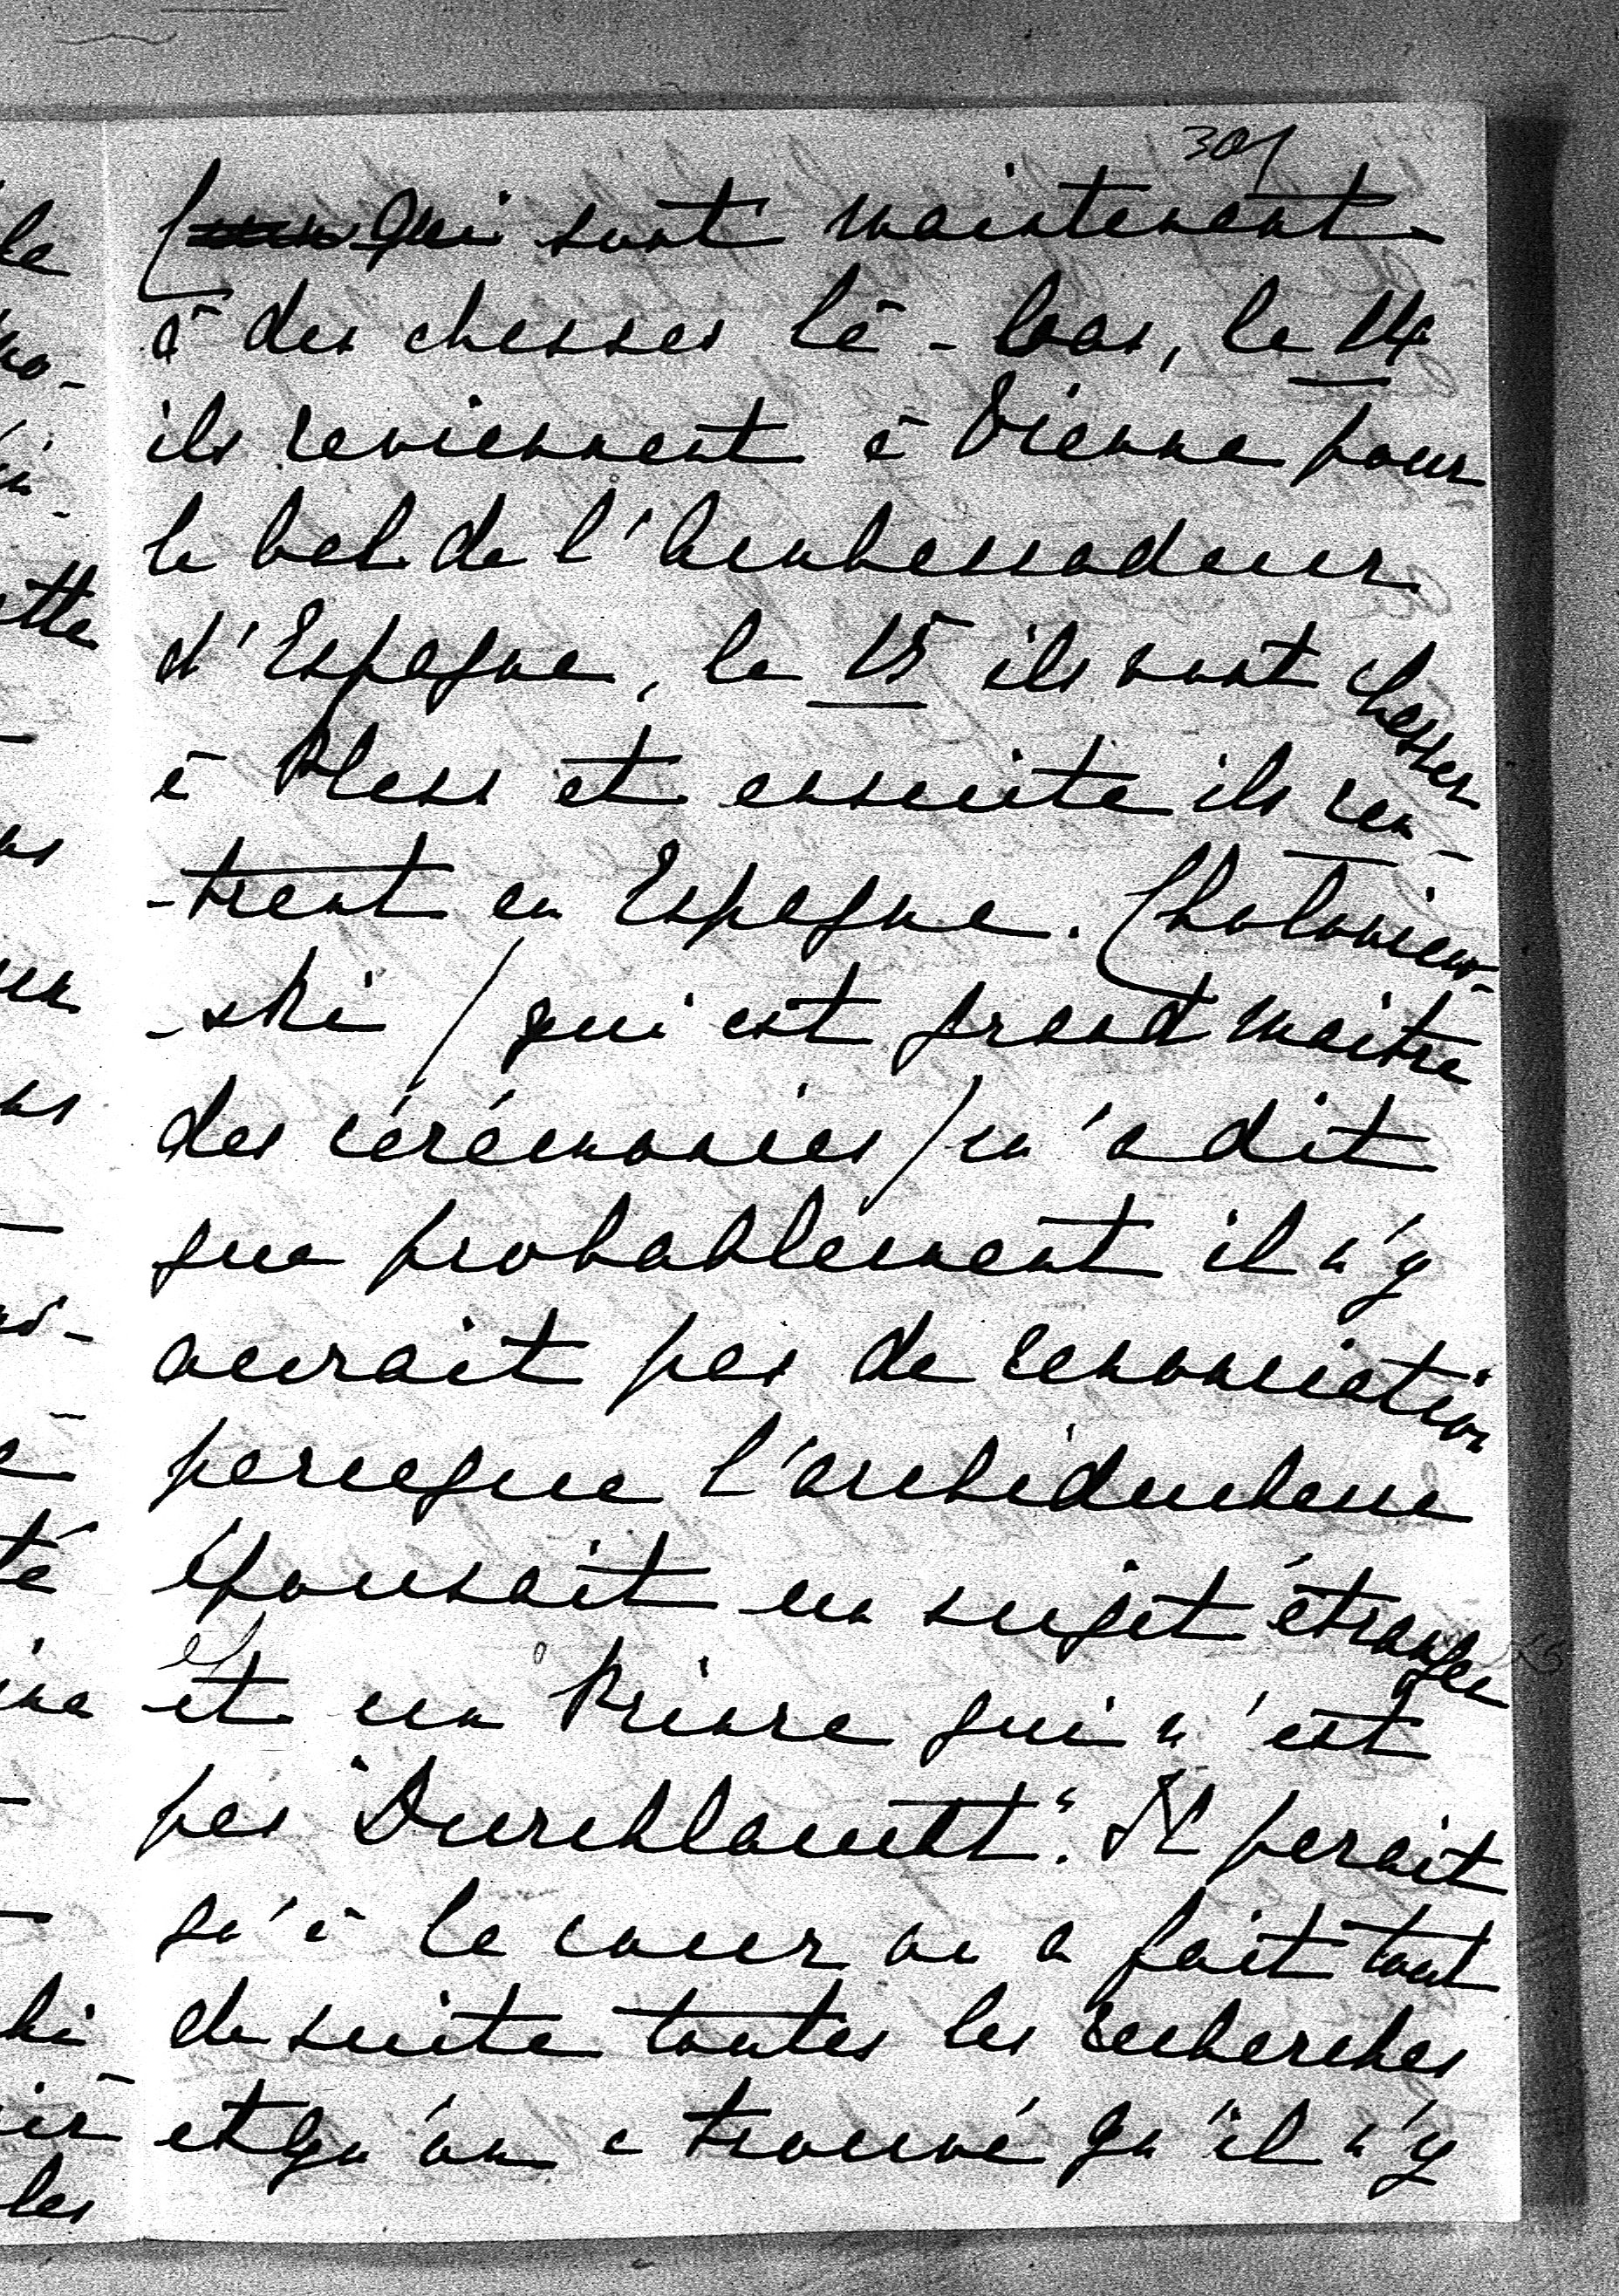 301
qui sont maintenant
à des chasses là-bas, le 14
ils reviennent à Vienne pour
le bal de l'Ambassadeur
d'Espagne, le 15 ils vont chasser
à Pless et ensuite ils ren-
-trent en Espagne. Choloniew-
-ski / qui est grand maitre
des cérémonies / m'a dit
que probablement il n'y
aurait pas de renonciation
parceque l'archiduchesse
épousait un sujet étranger
et un Prince qui n'est
pas "Durchlaucht". Il parait
qu'à la cour on a fait tout
de suite toutes les recherches
et qu'on a trouvé qu'il n'y